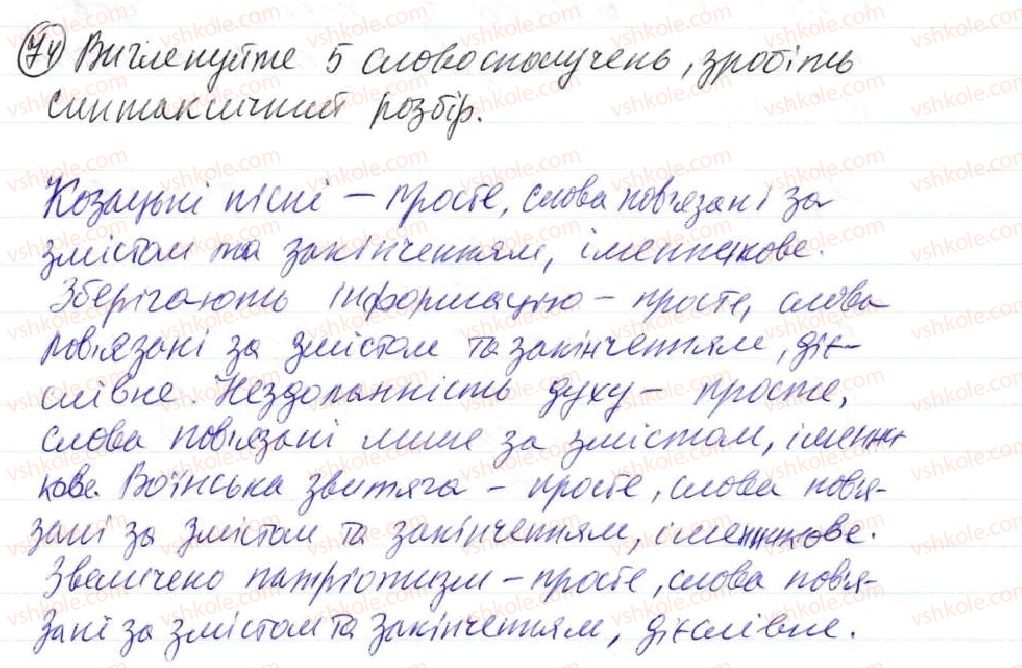 74 Вичленуйте 5 словосполучень, зробіть
синтаксичний розбір.
Козацькі пісні – просте, слова пов'язані за
змістом та закінченням, іменникове.
Зберігають інформацію – просте, слова
пов'язані за змістом та закінченням, діє-
слівне. Нездоланність духу – просте,
слова пов'язані лише за змістом, іменни-
кове. Воїнська звитяга – просте, слова пов'я-
зані за змістом та закінченням, іменникове.
Звеличено патріотизм – просте, слова пов'я-
зані за змістом та закінченням, дієслівне.
vshkole.com